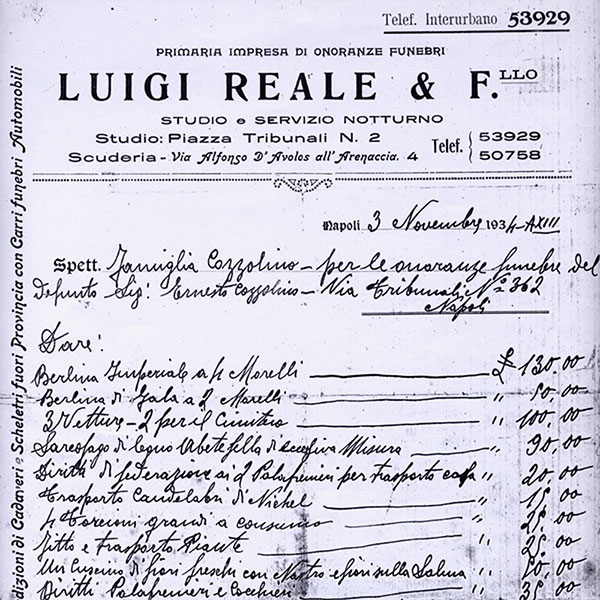 Telef. Interurbano 53929
PRIMARIA IMPRESA DI ONORANZE FUNEBRI
LUIGI REALE & F.LLO
STUDIO e SERVIZIO NOTTURNO
Studio: Piazza Tribunali N. 2
Scuderia - Via Alfonso D'Avolos all'Arenaccia. 4
Telef. 53929
50758
Napoli 3 Novembre 1934-AXIII
Spett. Famiglia Cozzolino - per le onoranze funebre del
defunto Sig. Ernesto Cozzolino - Via Tribunali N° 362
Napoli
Dare:
Berlina Imperiale a 4 Morelli £ 130,00
Berlina di Gala a 2 Morelli " 50,00
3 Vetture - 2 per il Cimitero " 100,00
Sarcofago di legno Misura " 90,00
Diritti di federazione ai 2 Palafrenieri per trasporto " 20,00
Trasporto Candelabri di Nichel " 15,00
4 Torcioni grandi a consumo " 25,00
Fitto e trasporto Piante " 25,00
Un Cuscino di fiori freschi con Nastro e fiori sulla Salma " 50,00
Diritti Palafrenieri e Cocchieri " 35,00
dizioni di Cadaveri e Scheletri fuori Provincia con Carri funebri Automobili